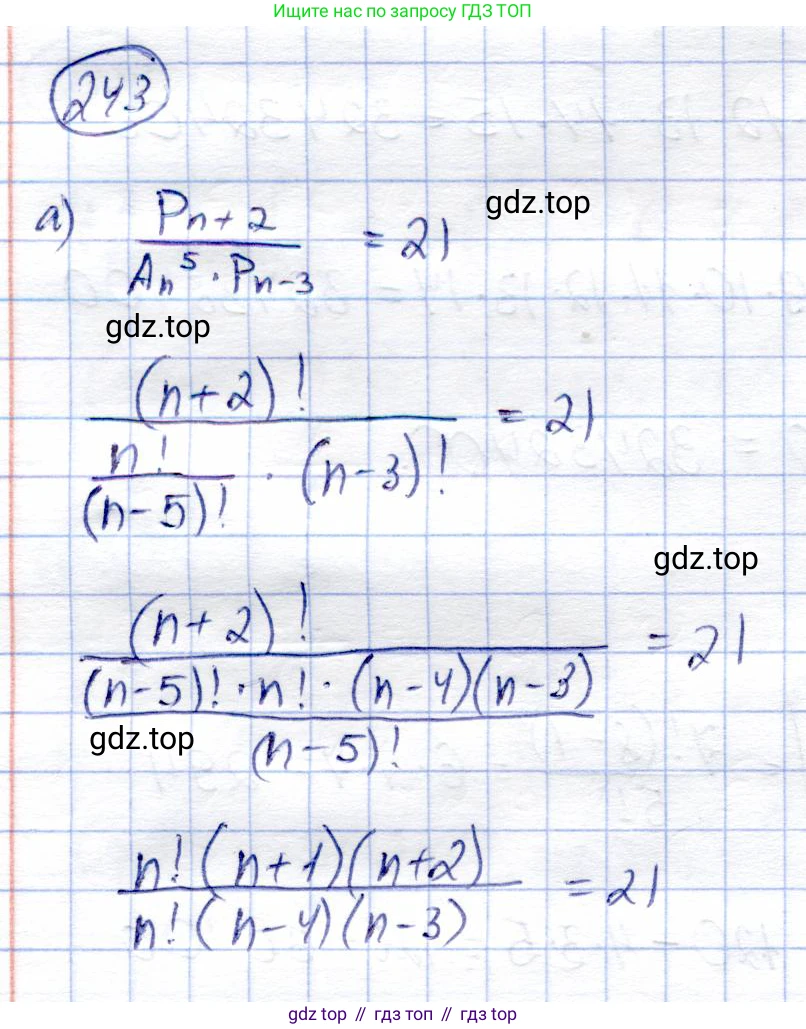 Ищите нас по запросу ГДЗ ТОП
243
а) Pn+2 / An^5 · Pn-3 = 21
gdz.top
gdz.top
(n+2)! / n! / (n-5)! · (n-3)! = 21
gdz.top
(n+2)! / (n-5)! · n! · (n-4)(n-3) / (n-5)! = 21
gdz.top
n!(n+1)(n+2) / n!(n-4)(n-3) = 21
gdz.top // гдз топ // гдз top